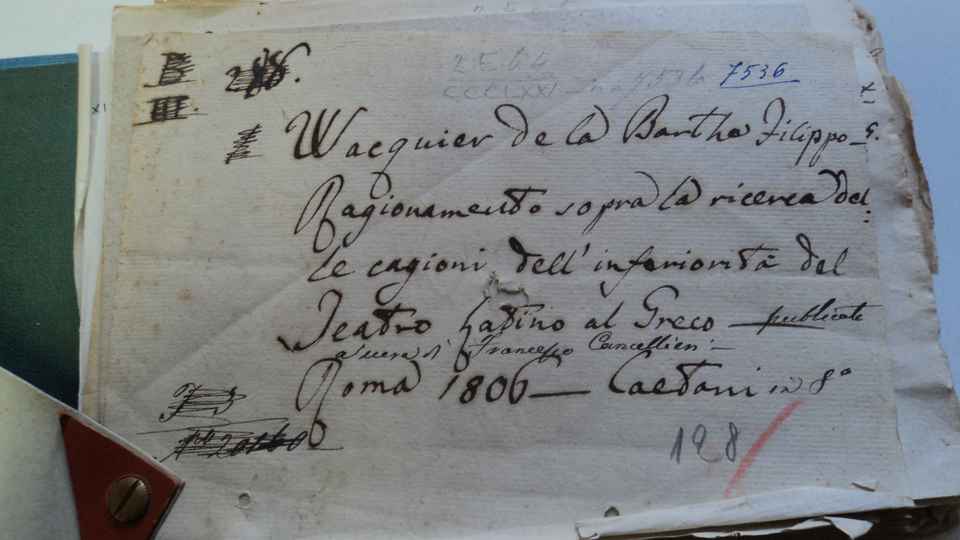 7536
Wacquier de la Barthe Filippo G.
Ragionamento sopra la ricerca del:
le cagioni dell'inferiorità del
Teatro Latino al Greco — publicato
a cura di Francesco Cancellieri —
Roma 1806 — Caetani in 8°
128